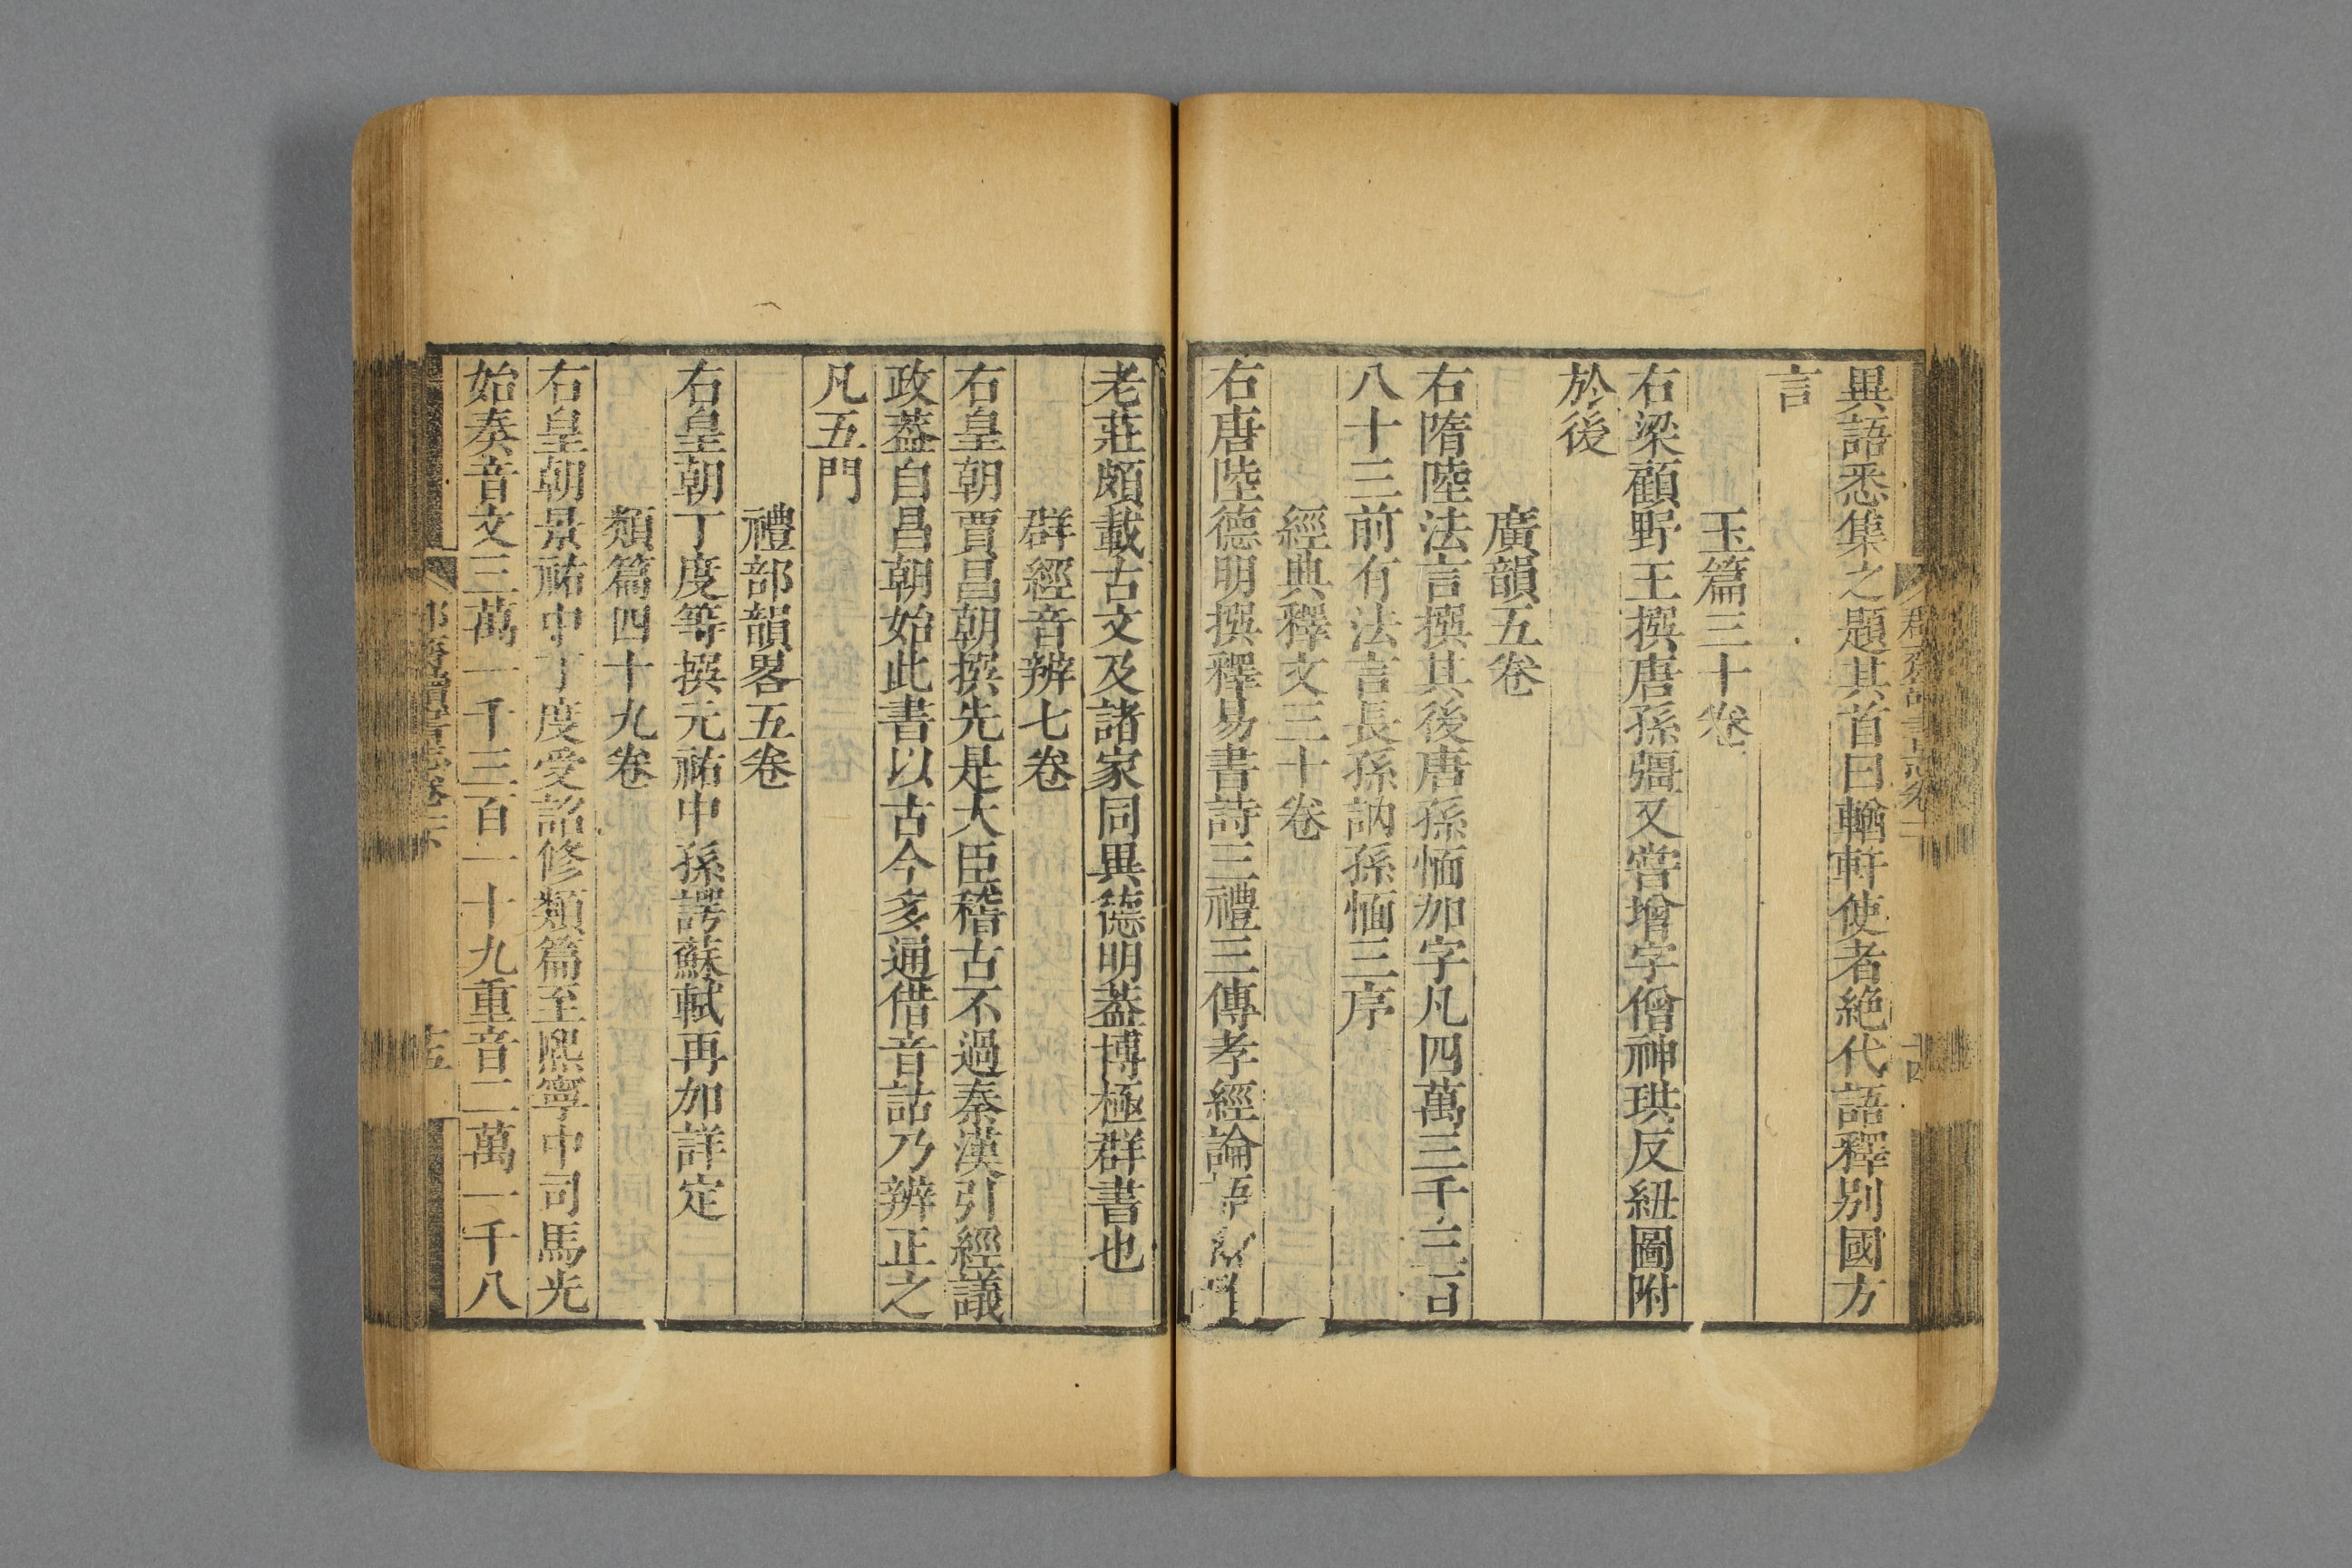 異語悉集之題其首曰輶軒使者絶代語釋别國方
言
玉篇三十卷
右梁顧野王撰唐孫彊又嘗增字僧神珙反紐圖附
於後
廣韻五卷
右隋陸法言撰其後唐孫愐加字凡四萬二千三百
八十三前有法言長孫訥孫愐三序
經典釋文三十卷
右唐陸德明撰釋易書詩三禮三傳孝經論語
老莊頗載古文及諸家同異德明葢博極群書也
群經音辨七卷
右皇朝賈昌朝撰先是大臣稽古不過秦漢引經議
政葢自昌朝始此書以古今多通借音詁乃辨正之
凡五門
禮部韻畧五卷
右皇朝丁度等撰元祐中孫諤蘇軾再加詳定
類篇四十九卷
右皇朝景祐中丁度受詔修類篇至熙寧中司馬光
始奏音文三萬一千三百一十九重音二萬一千八